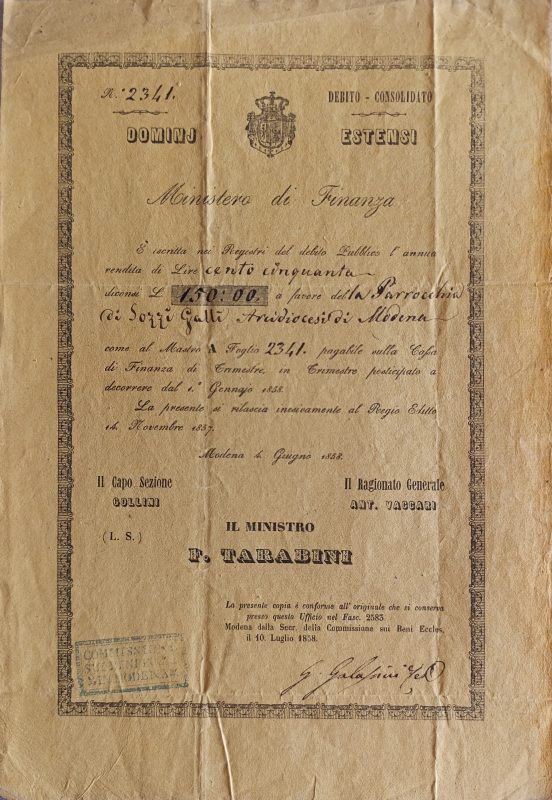 N.° 2341.
DEBITO - CONSOLIDATO
DOMINJ
ESTENSI
Ministero di Finanza
È iscritta nei Registri del debito Pubblico l'annua
rendita di Lire cento cinquanta
diconsi L. 150:00. a favore della Parrocchia
di Pozzi Galli Arcidiocesi di Modena
come al Mastro A Foglio 2341. pagabile sulla Cassa
di Finanza di Trimestre, in Trimestre posticipato a
decorrere dal 1.° Gennajo 1858.
La presente si rilascia inesivamente al Regio Editto
14. Novembre 1857.
Modena 4. Giugno 1858.
Il Capo Sezione
GOLLINI
Il Ragionato Generale
ANT. VACCARI
(L. S.)
IL MINISTRO
F. TARABINI
La presente copia è conforme all'originale che si conserva
presso questo Ufficio nel Fasc. 2585.
Modena dalla Segr. della Commissione sui Beni Eccles.
il 10. Luglio 1858.